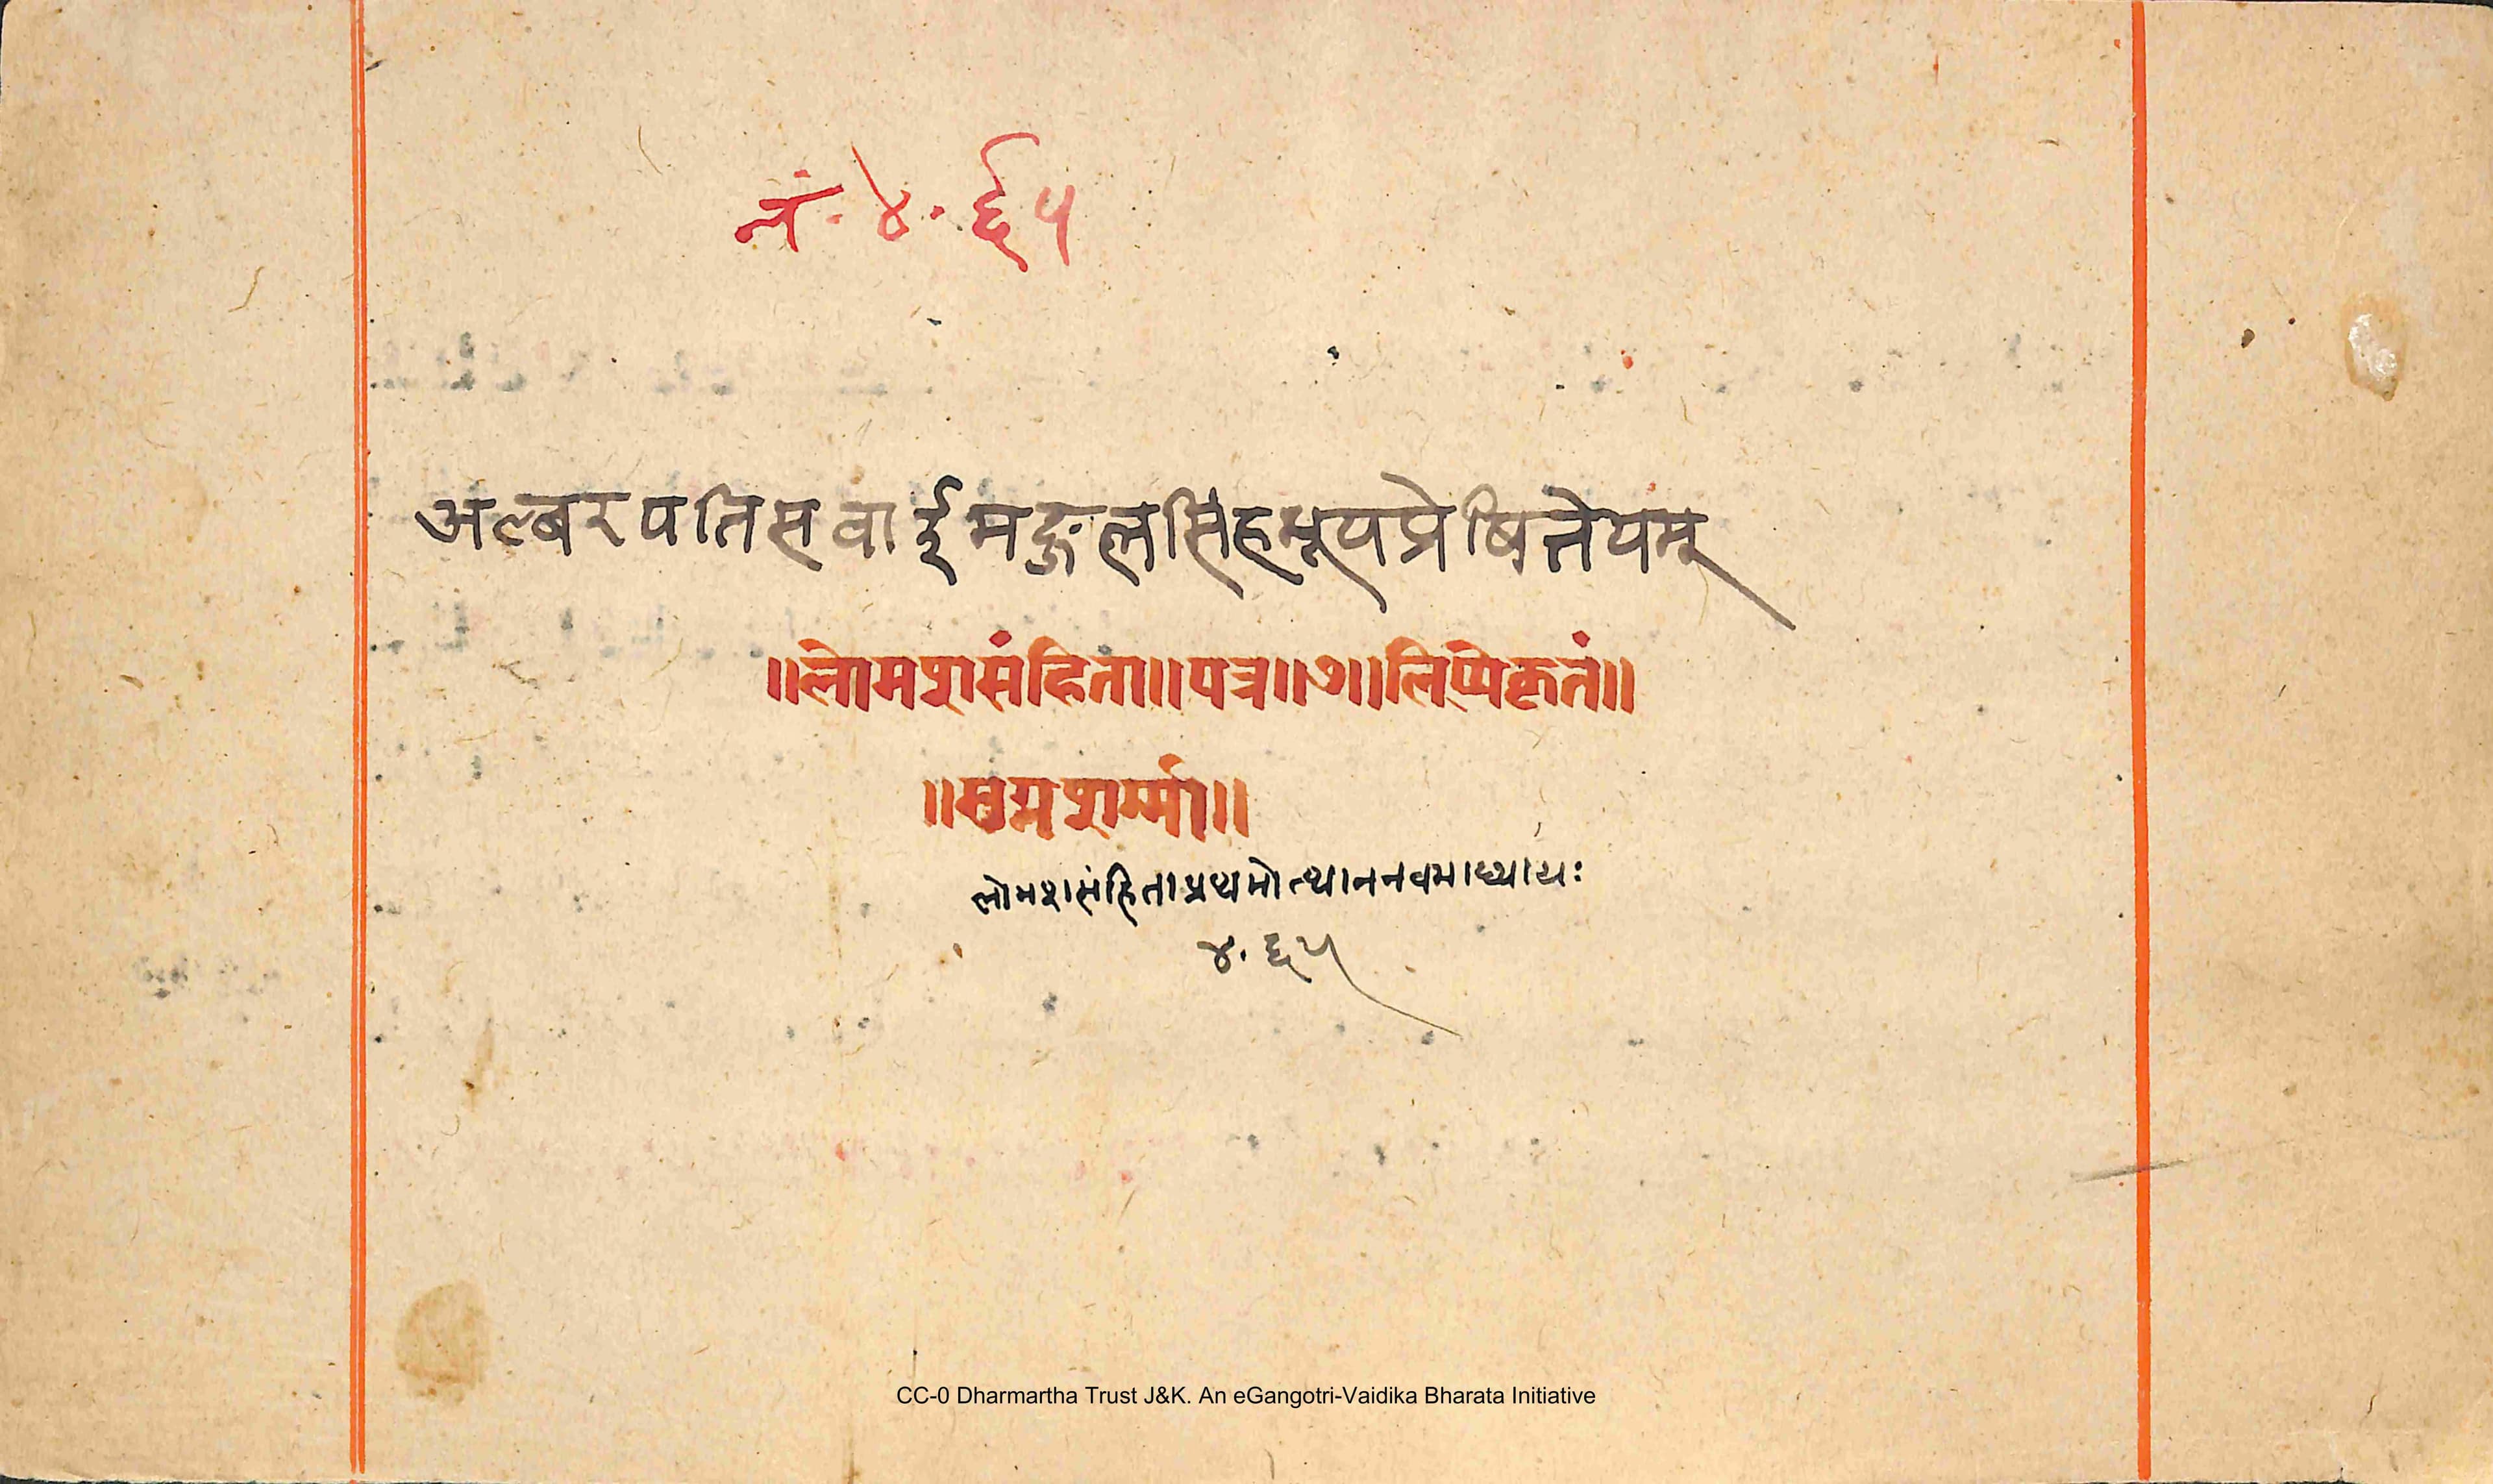 नं. ४. ६५
अल्बरपतिसवाईमङ्गलसिंहभूपप्रेषितेयम्
॥लोमशसंहिता॥पत्र॥७॥लिप्पीकृतं॥
शर्म्मा॥
लोमशसंहिताप्रथमोत्थाननवमाध्यायः
४. ६५
CC-0 Dharmartha Trust J&K. An eGangotri-Vaidika Bharata Initiative